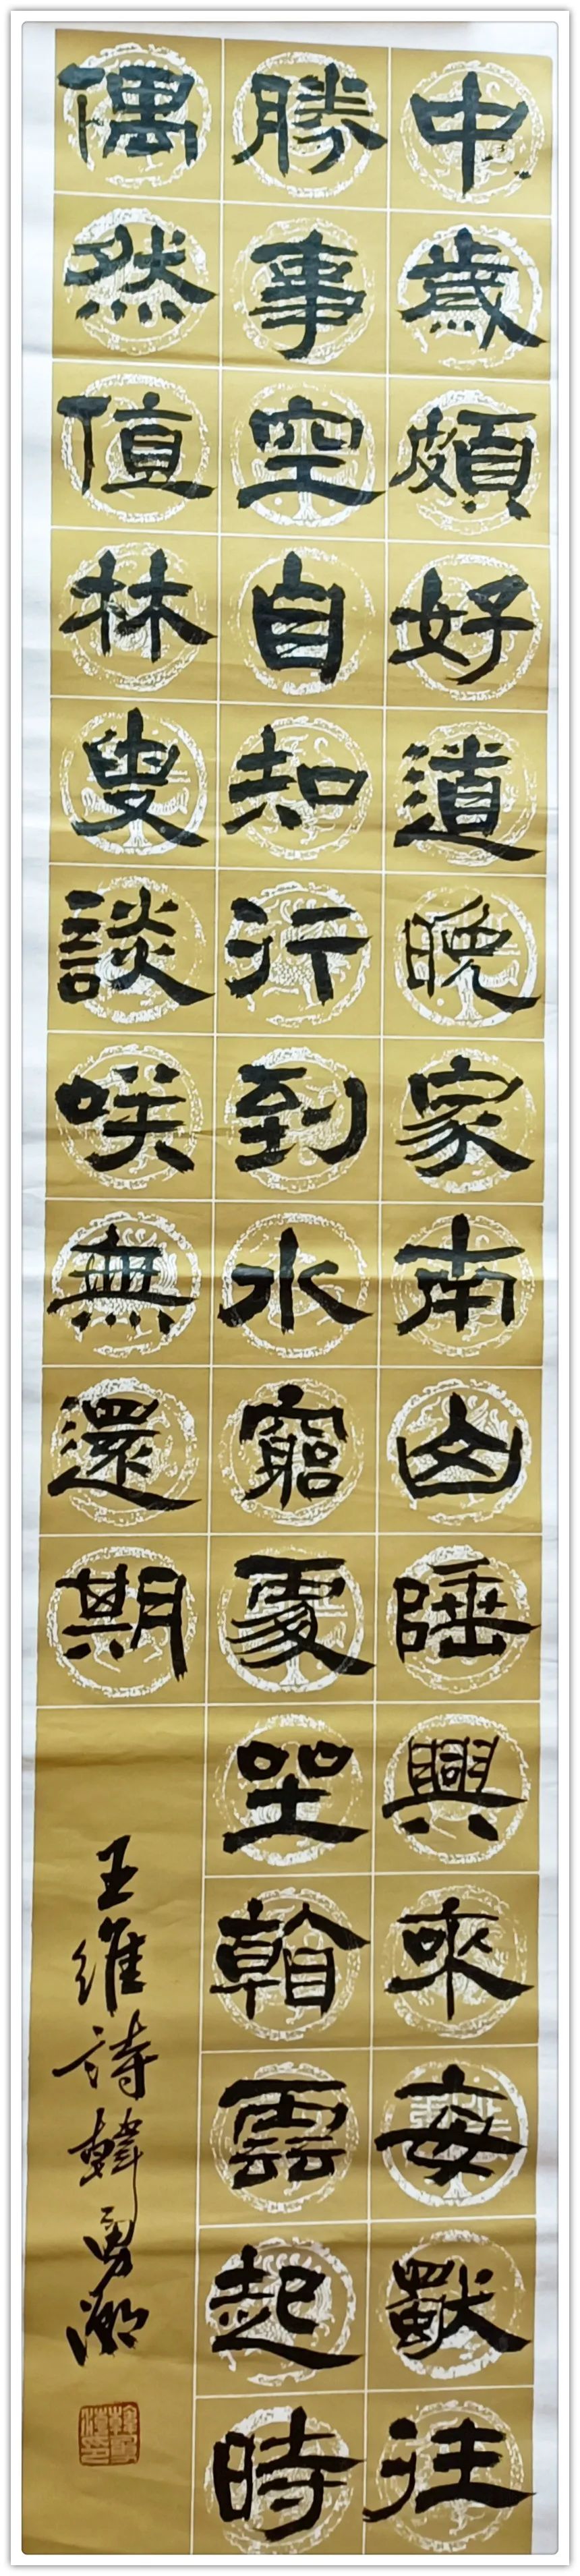 中歲頗好道晚家南山陲興來每獨往
勝事空自知行到水窮處坐看雲起時
偶然值林叟談咲無還期
王維詩韓勇